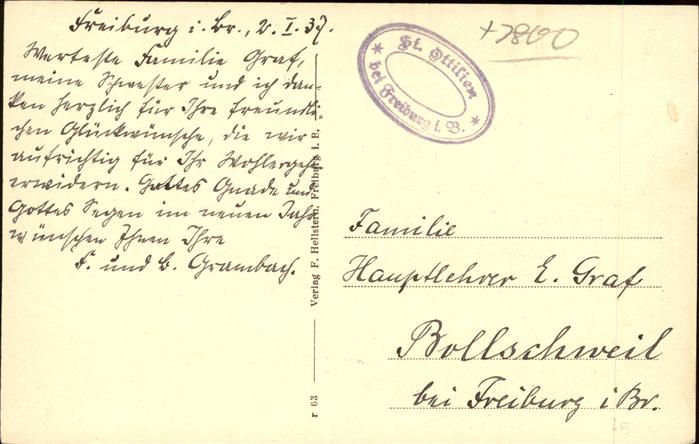 Freiburg i. Br., 2. I. 37.
Werteste Familie Graf,
meine Schwester und ich dan-
ken herzlich für Ihre freundli-
chen Glückwünsche, die wir
aufrichtig für Ihr Wohlergeh
erwidern. Gottes Gnade und
Gottes Segen im neuen Jahr
wünschen Ihnen Ihre
F. und B. Grambach.
r 63 Verlag F. Hellstern, Freiburg i. B.
St. Ottilien
bei Freiburg i. B.
+7800
Familie
Hauptlehrer E. Graf
Bollschweil
bei Freiburg i Br.